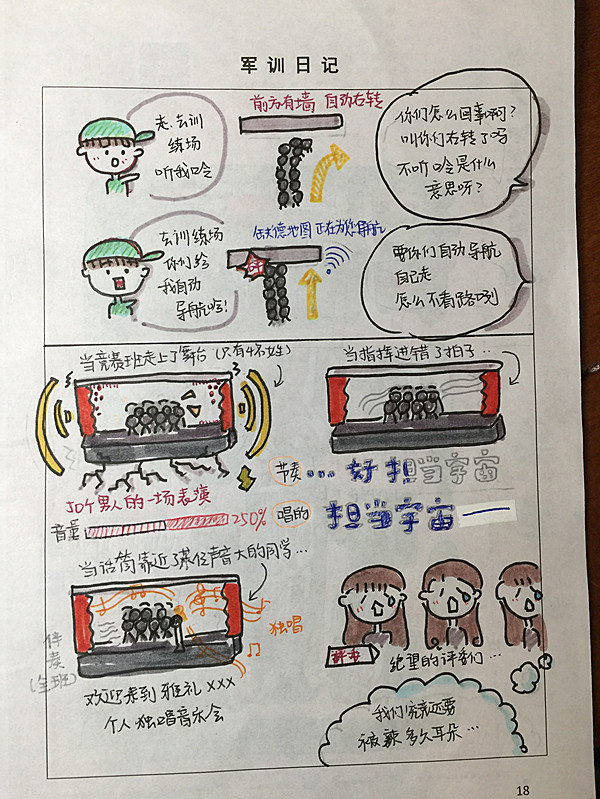 军训日记
走、去训
练场
听我口令
前方有墙 自动右转
你们怎么回事啊？
叫你们右转了吗
不听口令是什么
意思呀？
去训练场
你们给
我自动
导航哈！
缺德地图 正在为您导航
要你们自动导航
自己走
怎么不看路咧
当竞赛班走上了舞台（只有4个女生）
当指挥进错了拍子…
50个男人的一场表演
音量
250%
节奏 … 好 担当宇宙
唱的 担当宇宙——
当话筒靠近了某位声音大的同学…
独唱
伴奏
（全班）
欢迎来到 雅礼 XXX
个人 独唱音乐会
评委
绝望的评委们…
我们究竟还要
被辣多久耳朵…
18